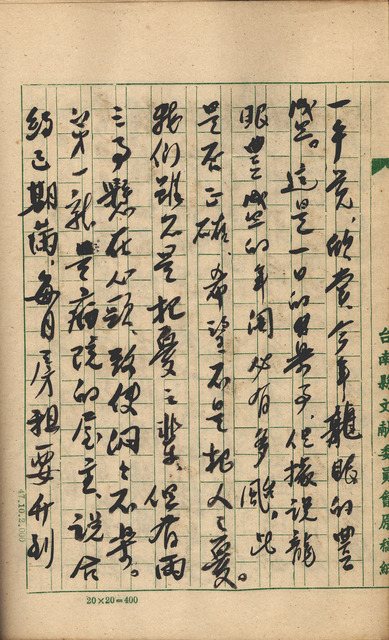 台南縣文獻委員會稿紙
一午覺,欣賞今年龍眼的豐
盛。這是一日的樂事,但據說龍
眼豐盛的年間必有多颱。此
是否正確,希望不是杞人之憂。
我們雖不是杞憂之輩,但有兩
三事懸在心頭,致使悶々不樂。
第一就是病院的屋主,說合
約已期滿,每月房租要升到
47.10.2,000
20×20=400